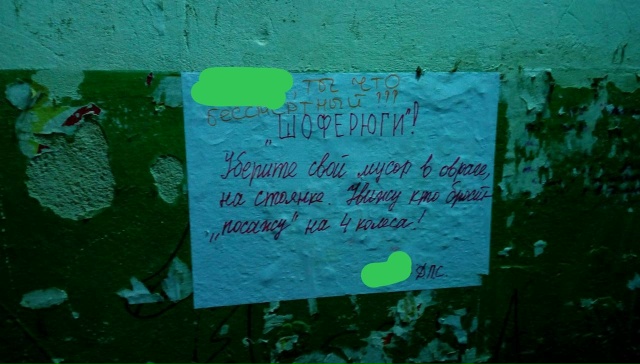 , ТЫ ЧТО
БЕССМЕРТНЫЙ !!!
"ШОФЕРЮГИ"!
Уберите свой мусор в овраге,
на стоянке. Увижу кто бросит
„посажу" на 4 колеса!
ДПС